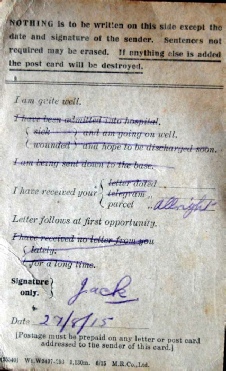 NOTHING is to be written on this side except the
date and signature of the sender. Sentences not
required may be erased. If anything else is added
the post card will be destroyed.
I am quite well.
I have been admitted into hospital,
{ sick } and am going on well.
{ wounded } and hope to be discharged soon.
I am being sent down to the base.
{ letter dated
I have received your { telegram „
{ parcel „ allright
Letter follows at first opportunity.
I have received no letter from you
{ lately.
{ for a long time.
Signature
only. } Jack
Date 27/8/15
[Postage must be prepaid on any letter or post card
addressed to the sender of this card.]
M.R.Co.,Ltd.